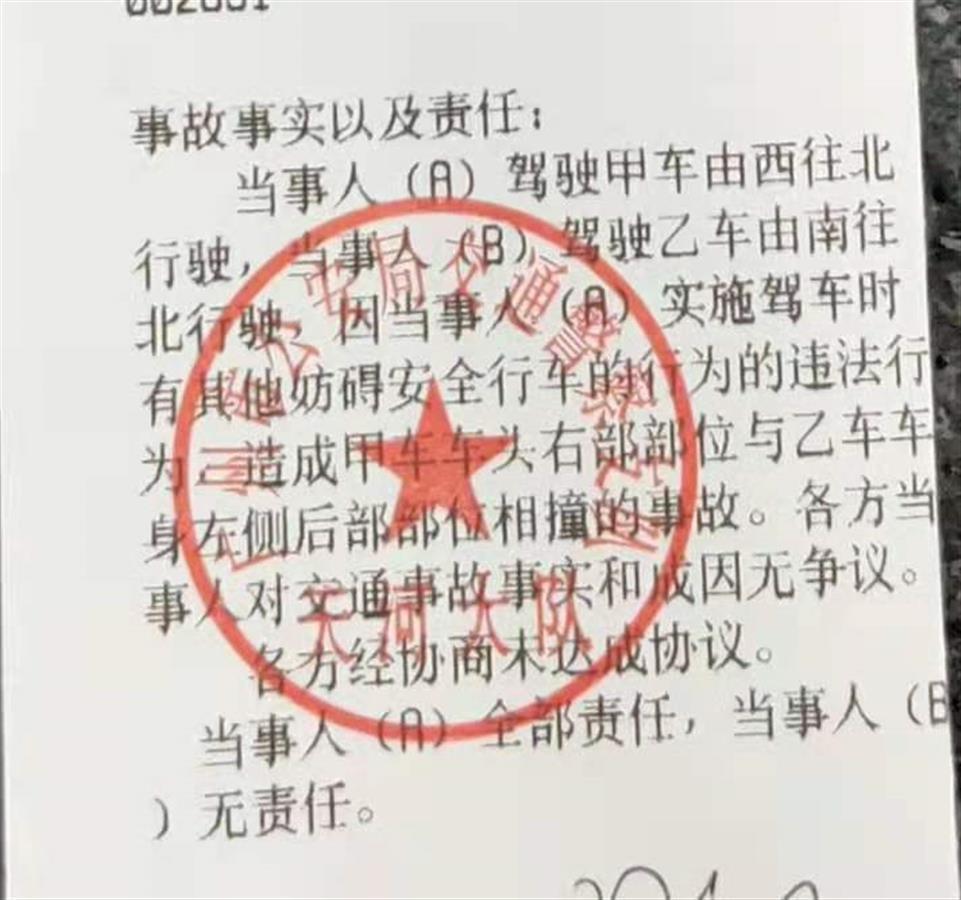 事故事实以及责任：
当事人（A）驾驶甲车由西往北
行驶，当事人（B）驾驶乙车由南往
北行驶，因当事人（A）实施驾车时
有其他妨碍安全行车的行为的违法行
为，造成甲车车头右部部位与乙车车
身左侧后部部位相撞的事故。各方当
事人对交通事故事实和成因无争议。
各方经协商未达成协议。
当事人（A）全部责任，当事人（B
）无责任。
天河大队